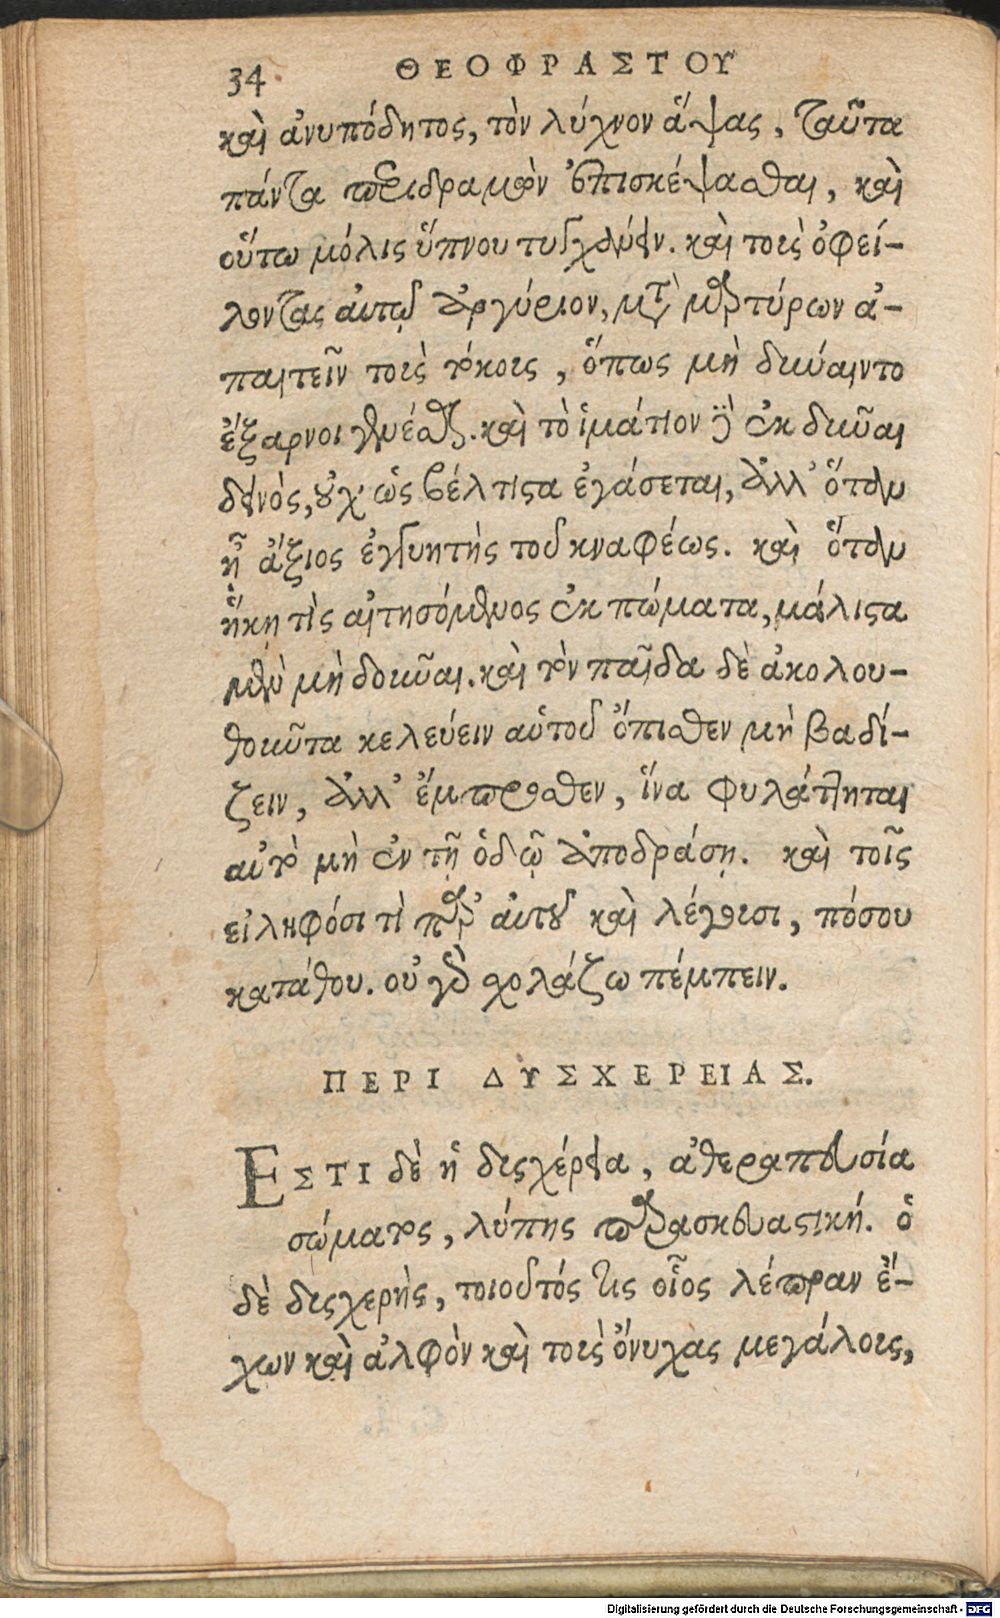 34 ΘΕΟΦΡΑΣΤΟΥ
καὶ ἀνυπόδητος, τὸν λύχνον ἅψας, ταῦτα
πάντα περιδραμὼν ἐπισκέψασθαι, καὶ
οὕτω μόλις ὕπνου τυγχάνειν. καὶ τοὺς ὀφεί-
λοντας αὐτῷ ἀργύριον, μετὰ μαρτύρων ἀ-
παιτεῖν τοὺς τόκους, ὅπως μὴ δύναιντο
ἔξαρνοι γενέσθαι. καὶ τὸ ἱμάτιον δὲ ἐκδοῦναι
δεινὸς, οὐχ ὡς βέλτιστα ἐγάσεται, ἀλλ' ὅταν
ᾖ ἄξιος ἐγγυητὴς τοῦ κναφέως. καὶ ὅταν
ἥκῃ τὶς αἰτησόμενος ἐκπώματα, μάλιστα
μὲν μὴ δοῦναι. καὶ τὸν παῖδα δὲ ἀκολου-
θοῦντα κελεύειν αὑτοῦ ὄπισθεν μὴ βαδί-
ζειν, ἀλλ' ἔμπροσθεν, ἵνα φυλάττηται
αὐτὸ μὴ ἐν τῇ ὁδῷ ἀποδράσῃ. καὶ τοῖς
εἰληφόσι τὶ παρ' αὐτοῦ καὶ λέγουσι, πόσου
κατάθου. οὐ γὰρ σχολάζω πέμπειν.
ΠΕΡΙ ΔΥΣΧΕΡΕΙΑΣ.
ΕΣΤΙ δὲ ἡ δυσχέρεια, ἀθεραπευσία
σώματος, λύπης παρασκευαστική. ὁ
δὲ δυσχερὴς, τοιοῦτός τις οἷος λέπραν ἔ-
χων καὶ ἀλφὸν καὶ τοὺς ὄνυχας μεγάλους,
Digitalisierung gefördert durch die Deutsche Forschungsgemeinschaft - DFG